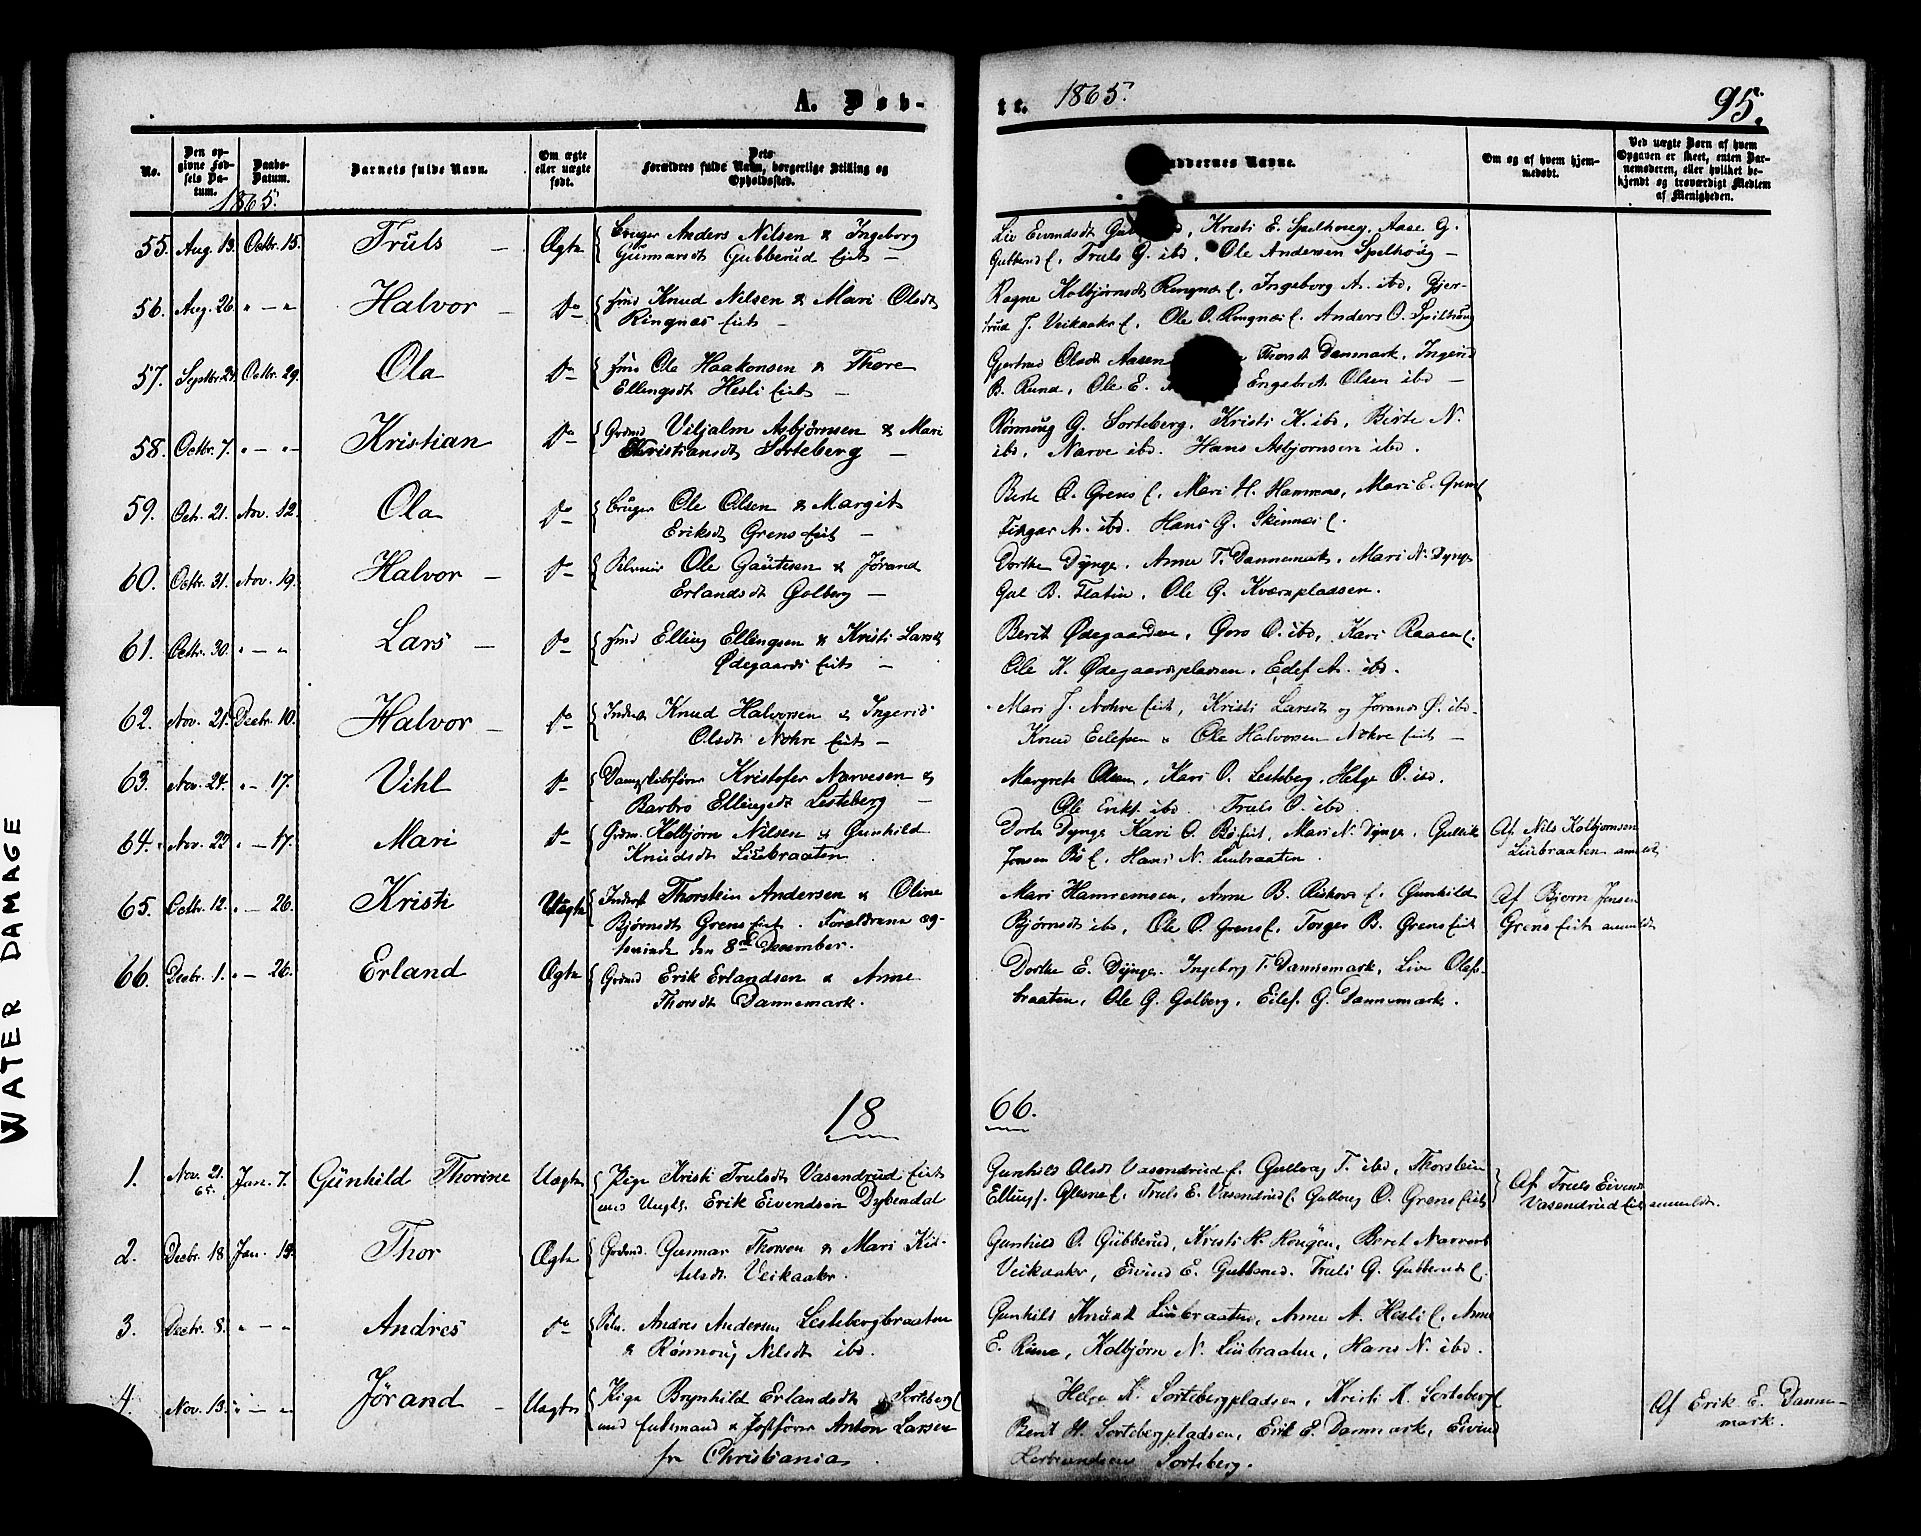 WATER DAMAGE
A. Døb-
te. 1865. 95.
No.
Den opgivne Fødsels Datum.
Daabs-Datum.
Barnets fulde Navn.
Om ægte eller uægte født.
Dets Forældres fulde Navn, borgerlige Stilling og Opholdssted.
Faddernes Navne.
Om og af hvem hjemmedøbt.
Ved uægte Børn af hvem Opgaven er skeet, enten Barnemoderen, eller hvilket bekjendt og troværdigt Medlem af Menigheden.
1865.
55. Aug. 13. Octbr. 15. Truls – Ægte Bruger Anders Nilsen & Ingeborg
Gunnarsdt Gubberud Eiet –
Liv Eivindsdt, Kristi E. Spelhoug. Aase G.
Gubberud E. Truls G. ibd. Ole Andersen Spelhoug –
56. Aug. 26. " – " Halvor – do Knud Nilsen & Mari Olsdt
Ringnes Eiet –
Ragne Kolbjørnsdt Ringnes E. Ingeborg A. ibd, Gjer-
trud J. Veikaaker E. Ole O. Ringnes E. Anders O. Spelhoug
57. Septbr. 24. Octbr. 29. Ola do Ole Haakonsen & Thore
Ellingsdt Hesli Eiet –
Gjertrud Olsdt Aasen Thorsdt Danmark, Ingerid
B. Rund, Ole E. Engebret Olsen ibd –
58. Octbr. 7. " – " Kristian do Grdmd Viljalm Asbjørnsen & Mari
Christiansdt Sorteberg –
Rønnoug G. Sorteberg. Kristi K. ibd, Birte N.
ibd, Narve ibd. Hans Asbjornsen ibd.
59. Octr. 21. Nov. 12. Ola do Bruger Ole Olsen & Margit
Eriksdt Grens Eiet –
Berte O. Grens E. Mari H. Hammne, Mari E. Grens E
A. ibd. Hans G. Skinnes E.
60. Octbr. 31. Nov. 19. Halvor – do Ole Gautesen & Jørand
Erlandsdt Golberg –
Dorthe Dynge. Anne T. Dannemark, Mari N. Dynge
Gul B. Flatin, Ole G. Kværnpladsen.
61. Octbr. 30. " – " Lars – do Elling Ellingsen & Kristi Larsdt
Ødegaards Eiet –
Berit Ødegaarden, Goro O. ibd, Kari Raaen E.
Ole K. Ødegaardspladsen. Edef A. ibd.
62. Nov. 21. Decbr. 10. Halvor – do Inderst Knud Halvorsen & Ingerid
Olsdt Nohre Eiet –
Mari J. Nohre Eiet, Kristi Larsdt og Jorand Ø. ibd.
Knud Eilefsen & Ole Halvorsen Nohre Eiet –
63. Nov. 24. " – 17. Vihl do Kristofer Narvesen &
Barbro Ellingsdt Lesteberg –
Margrete Olsen, Kari O. Lesteberg. Helge O. ibd.
Ole Eriks. ibd Truls O. ibd.
64. Nov. 23. " – 17. Mari do Grdm. Kolbjørn Nilsen & Gunhild
Knudsdt Liubraaten
Dorte Dynge Kari O. Bø Eiet, Mari N. Dynge, Gullik
Jonsen Bø E. Hans N. Liubraaten.
Af Nils Kolbjornsen
Liubraaten anmeldt
65. Octbr. 12. " – 26. Kristi Uægte Inderst Thorstein Andersen & Oline
Bjørnsdt Grens Eiet. Forældrene æg-
teviede den 8de December.
Mari Hamremoen, Anne B. E. Gunhild
Bjørnsdt ibd, Ole O. Grens E. Torger B. Grens Eiet
Af Bjorn Jensen
Grens Eiet anmeldt
66. Decbr. 1. " – 26. Erland Ægte Grdmd Erik Erlandsen & Anne
Thorsdt Dannemark.
Dorthe E. Dynge. Ingeborg T. Dannemark, Live Olefs-
braaten, Ole G. Golberg, Eilef G. Dannemark.
18 66.
1. Nov. 21. 65. Jan. 7. Gunhild Thorine Uægte Pige Kristi Trulsdt Vasendrud Eiet
med Ungk. Erik Eivendsen Dybendal
Gunhild Olsdt Vasendrud E. Gullaug T. ibd, Thorstein
Ellingss. Glesne E. Truls E. Vasendrud E. Gullaug O. Grens Eiet
Af Truls Eivends
Vasendrud Eiet anmeldt.
2. Decbr. 18. Jan. 13. Thor Ægte Grdmd. Gunnar Thorson & Mari Kit-
telsdt. Veikaaker.
Gunhild O. Gubberud, Kristi N. Rougen, Berit Narvesdt
Veikaaker, Eivind E. Gubberud. Truls G. Gubberud E.
3. Decbr. 8. " – " Andres do Andres Andersen Lestebergbraaten
& Rønnoug Nilsdt ibd.
Gunhild Knudsdt Liubraaten, Anne A. Hesli E. Anne
E. Rime, Kolbjørn N. Liubraaten, Hans N. ibd.
4. Nov. 13. " – " Jørand – Uægte Pige Brynhild Erlandsdt Sorteberg E
med Enkemand & Anton Larsen
fra Christiania
Helge K. Sortebergpladsen, Kristi K. Sorteberg E
Berit H. Sortebergpladsen, Erik E. Danmark, Eivind
Sorteberg.
Af Erik E. Danne-
mark.